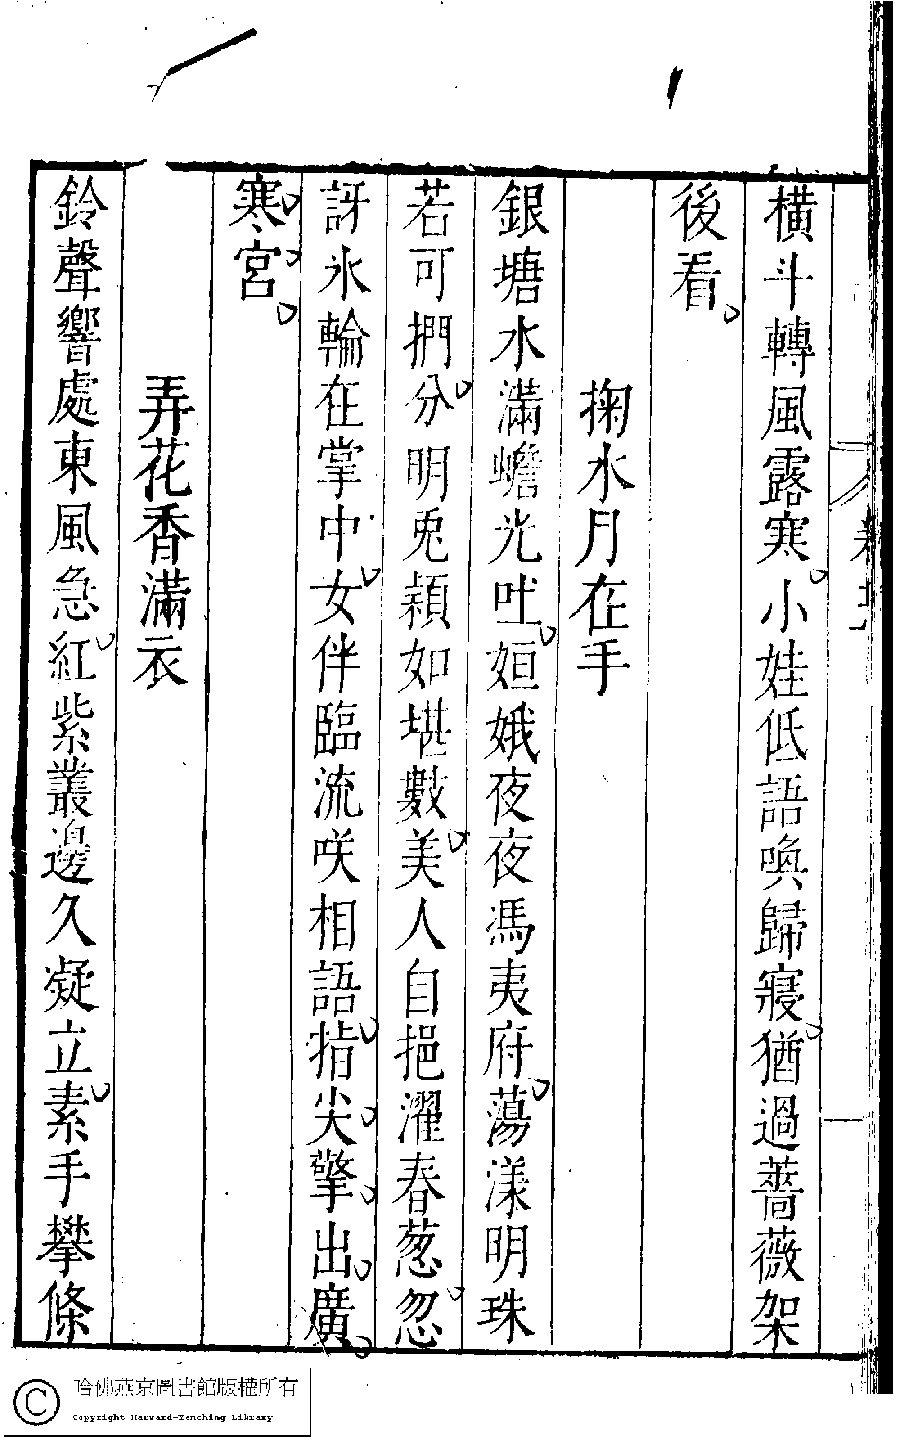 橫斗轉風露寒小娃低語喚歸寢猶過薔薇架
後看
掬水月在手
銀塘水滿蟾光吐姮娥夜夜馮夷府蕩漾明珠
若可捫分明兎穎如堪數美人自挹濯春葱忽
訝氷輪在掌中女伴臨流咲相語指尖擎出廣
寒宮
弄花香滿衣
鈴聲響處東風急紅紫叢邊久凝立素手攀條
哈佛燕京圖書館版權所有
Copyright Harvard-Yenching Library